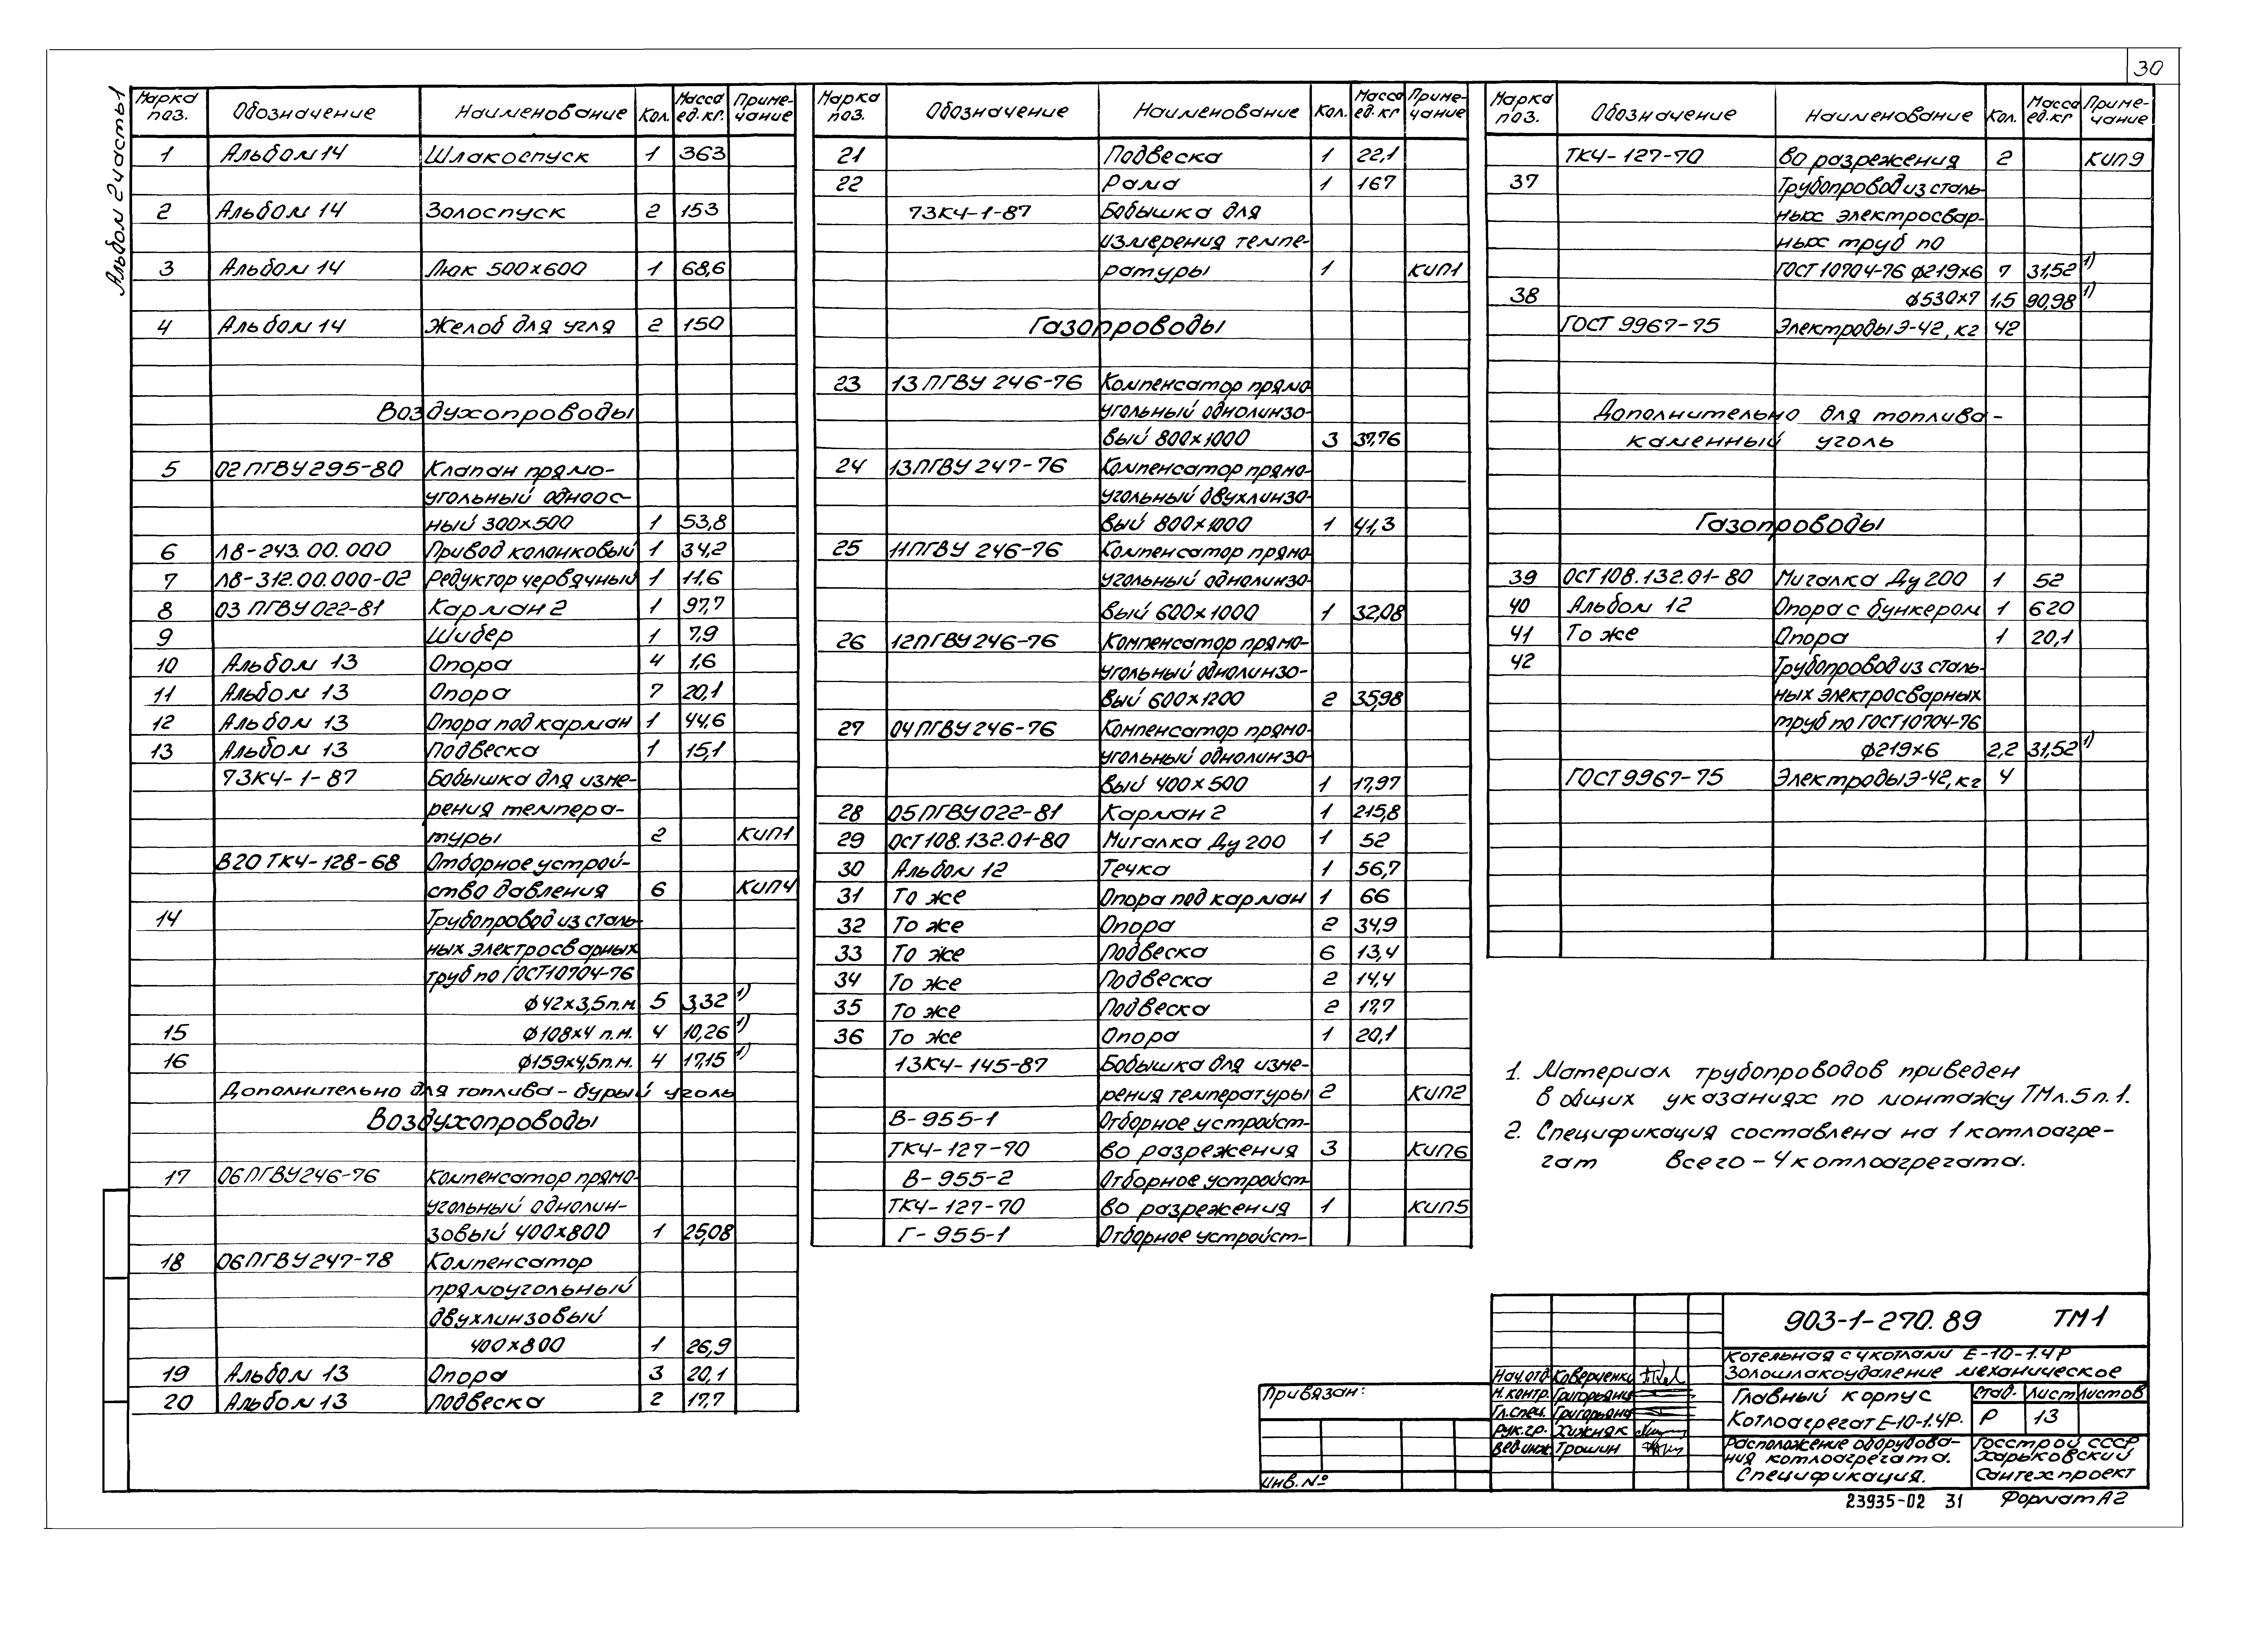 30
Альбом 2 часть 1
Марка поз. Обозначение Наименование Кол. Масса ед. кг. Приме-чание
1 Альбом 14 Шлакоспуск 1 363
2 Альбом 14 Золоспуск 2 153
3 Альбом 14 Люк 500х600 1 68,6
4 Альбом 14 Желоб для угля 2 150
Воздухопроводы
5 02 ПГВУ 295-80 Клапан прямо-
угольный одноос-
ный 300х500 1 53,8
6 Л8-243.00.000 Привод колонковый 1 34,2
7 Л8-312.00.000-02 Редуктор червячный 1 11,6
8 03 ПГВУ 022-81 Карман 2 1 97,7
9 Шибер 1 7,9
10 Альбом 13 Опора 4 1,6
11 Альбом 13 Опора 7 20,1
12 Альбом 13 Опора под карман 1 44,6
13 Альбом 13 Подвеска 1 15,1
73КЧ-1-87 Бобышка для изме-
рения темпера-
туры 2 КИП1
В20 ТКЧ-128-68 Отборное устрой-
ство давления 6 КИП4
14 Трубопровод из сталь-
ных электросварных
труб по ГОСТ10704-76
ф42х3,5п.м. 5 3,32 1)
15 ф108х4 п.м. 4 10,26 1)
16 ф159х4,5п.м. 4 17,15 1)
Дополнительно для топлива - бурый уголь
Воздухопроводы
17 06ПГВУ246-76 Компенсатор прямо-
угольный однолин-
зовый 400х800 1 25,08
18 06ПГВУ247-78 Компенсатор
прямоугольный
двухлинзовый
400х800 1 26,9
19 Альбом 13 Опора 3 20,1
20 Альбом 13 Подвеска 2 17,7
Марка поз. Обозначение Наименование Кол. Масса ед. кг Приме-чание
21 Подвеска 1 22,1
22 Рама 1 167
73КЧ-1-87 Бобышка для
измерения темпе-
ратуры 1 КИП1
Газопроводы
23 13 ПГВУ 246-76 Компенсатор прямо-
угольный однолинзо-
вый 800х1000 3 37,76
24 13ПГВУ 247-76 Компенсатор прямо-
угольный двухлинзо-
вый 800х1000 1 41,3
25 11ПГВУ 246-76 Компенсатор прямо-
угольный однолинзо-
вый 600х1000 1 32,08
26 12ПГВУ 246-76 Компенсатор прямо-
угольный однолинзо-
вый 600х1200 2 35,98
27 04ПГВУ 246-76 Компенсатор прямо-
угольный однолинзо-
вый 400х500 1 17,97
28 05ПГВУ022-81 Карман 2 1 215,8
29 ОСТ108.132.01-80 Мигалка Ду 200 1 52
30 Альбом 12 Течка 1 56,7
31 То же Опора под карман 1 66
32 То же Опора 2 34,9
33 То же Подвеска 6 13,4
34 То же Подвеска 2 14,4
35 То же Подвеска 2 17,7
36 То же Опора 1 20,1
13КЧ-145-87 Бобышка для изме-
рения температуры 2 КИП2
В-955-1 Отборное устройст-
ТКЧ-127-70 во разрежения 3 КИП6
В-955-2 Отборное устройст-
ТКЧ-127-70 во разрежения 1 КИП5
Г-955-1 Отборное устройст-
Марка поз. Обозначение Наименование Кол. Масса ед. кг Приме-чание
ТКЧ-127-70 во разрежения 2 КИП9
37 Трубопровод из сталь-
ных электросвар-
ных труб по
ГОСТ 10704-76 ф219х6 7 31,52 1)
38 ф530х7 1,5 90,98 1)
ГОСТ 9967-75 Электроды Э-42, кг 42
Дополнительно для топлива -
каменный уголь
Газопроводы
39 ОСТ108.132.01-80 Мигалка Ду 200 1 52
40 Альбом 12 Опора с бункером 1 620
41 То же Опора 1 20,1
42 Трубопровод из сталь-
ных электросварных
труб по ГОСТ10704-76
ф219х6 2,2 31,52 1)
ГОСТ9967-75 Электроды Э-42, кг 4
1. Материал трубопроводов приведен
в общих указаниях по монтажу ТМ л.5 п.1.
2. Спецификация составлена на 1 котлоагре-
гат всего - 4 котлоагрегата.
Привязан:
Инв. №
903-1-270.89 ТМ1
Котельная с 4 котлами Е-10-1.4Р
Золошлакоудаление механическое
Нач.отд. Коверченко
Н.контр. Григорьянц
Гл.спец. Григорьянц
Рук.гр. Хижняк
Вед.инж. Трошин
Главный корпус
Котлоагрегат Е-10-1.4Р.
Стад. Лист Листов
Р 13
Расположение оборудова-
ния котлоагрегата.
Спецификация.
Госстрой СССР
Харьковский
Сантехпроект
23935-02 31 Формат А2